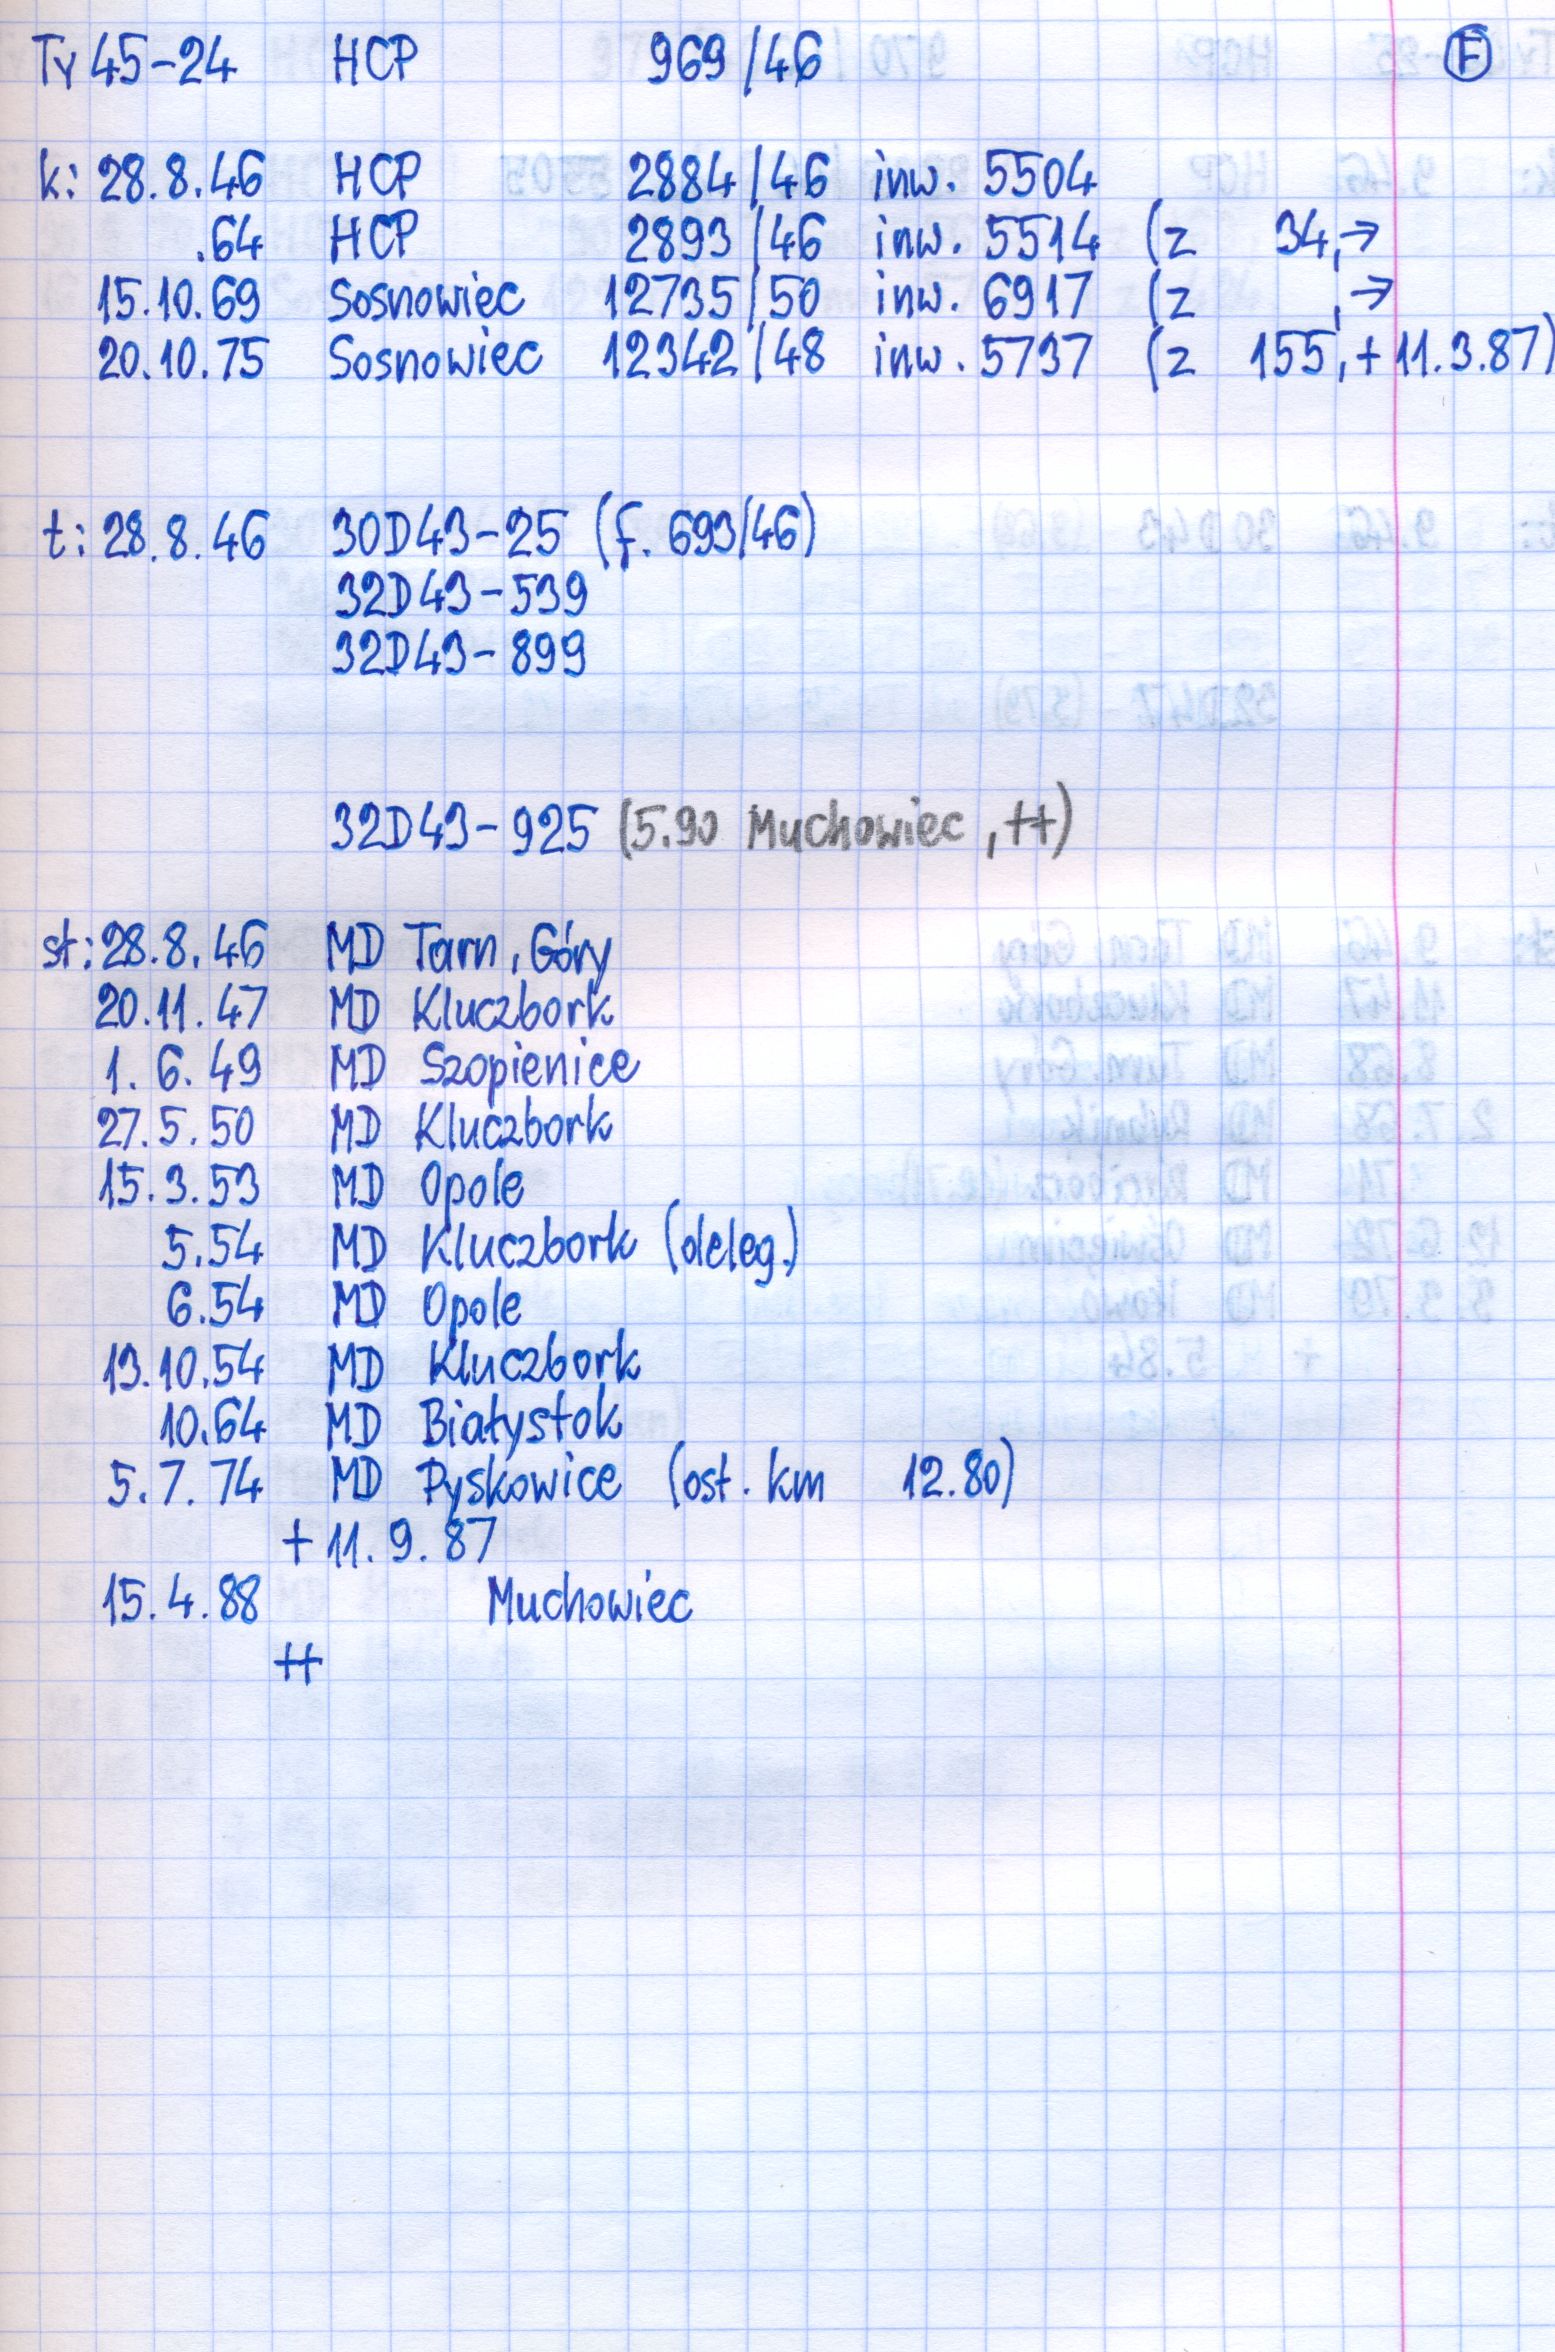 Ty 45-24 HCP 969/46 F
k: 28.8.46 HCP 2884/46 inw. 5504
.64 HCP 2893/46 inw. 5514 (z 34,→
15.10.69 Sosnowiec 12735/50 inw. 6917 (z ,→
20.10.75 Sosnowiec 12342/48 inw. 5737 (z 155,+11.3.87)
t: 28.8.46 30D43-25 (f. 693/46)
32D43-539
32D43-899
32D43-925 (5.90 Muchowiec, ++)
st: 28.8.46 MD Tarn. Góry
20.11.47 MD Kluczbork
1.6.49 MD Szopienice
27.5.50 MD Kluczbork
15.3.53 MD Opole
5.54 MD Kluczbork (deleg.)
6.54 MD Opole
13.10.54 MD Kluczbork
10.64 MD Białystok
5.7.74 MD Pyskowice (ost. km 12.80)
+ 11.9.87
15.4.88 Muchowiec
++